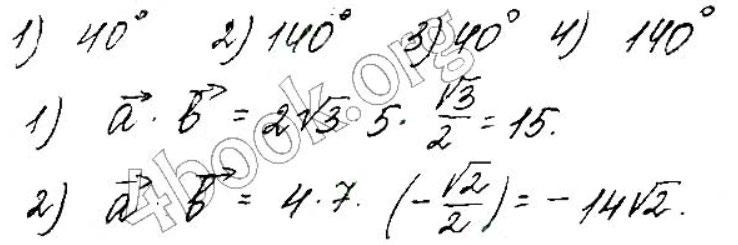 1) 40° 2) 140° 3) 40° 4) 140°
1) a⃗ · b⃗ = 2√3 · 5 · √3/2 = 15.
2) a⃗ · b⃗ = 4 · 7 · (-√2/2) = -14√2.
4book.org